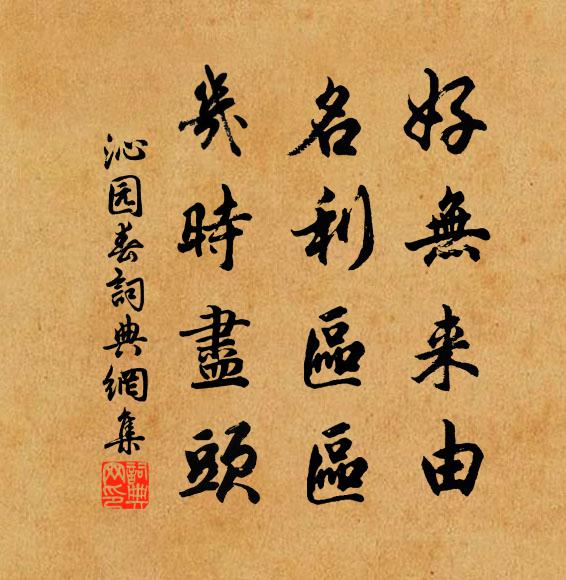 好無来由
名利區區
幾時盡頭
沁园春詞典網集
詞典网印